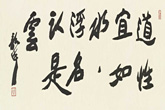 道性
宜如
水
浮名
認是
雲